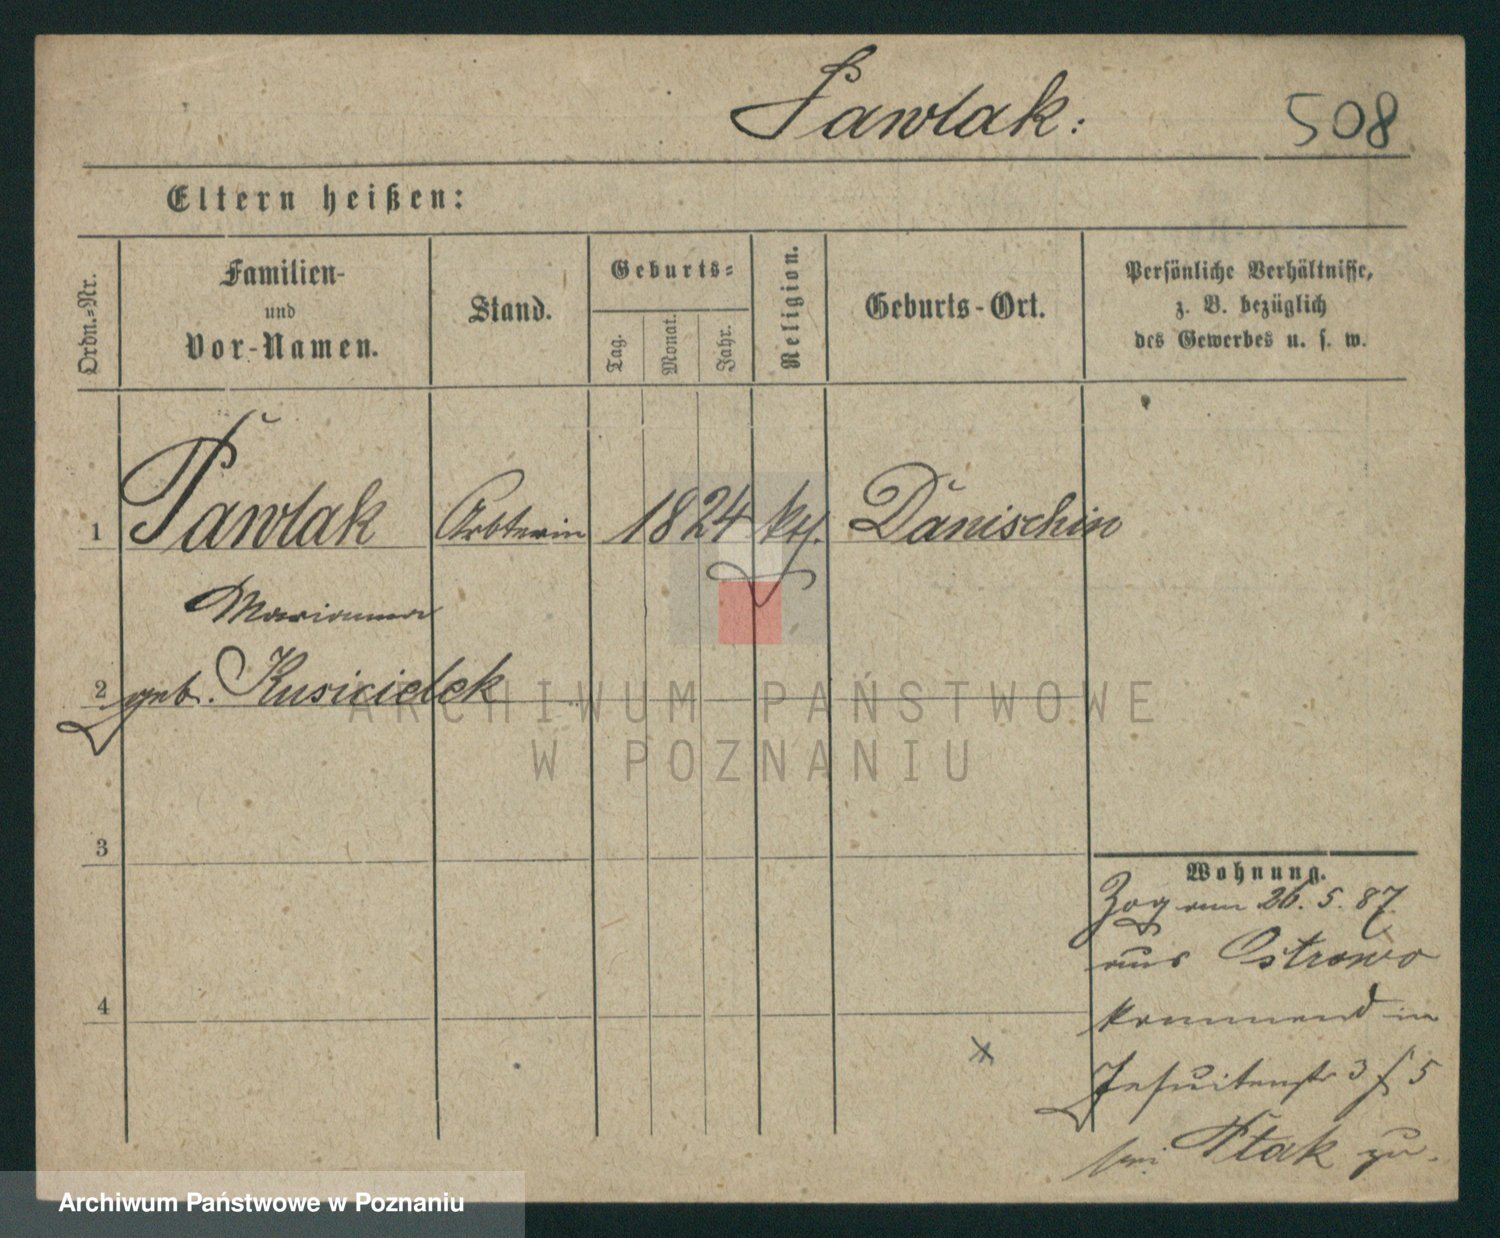 Pawlak: 508
Eltern heißen:
Ordn.-Nr.
Familien-
und
Vor-Namen.
Stand.
Geburts-
Tag.
Monat.
Jahr.
Religion.
Geburts-Ort.
Persönliche Verhältnisse,
z. B. bezüglich
des Gewerbes u. s. w.
1 Pawlak Arbterin 1824 kth. Danischin
Marianna
2 geb. Kusicielek
3
4
Wohnung.
Zog am 26. 5. 87
aus Ostrowo
kommend in
Jesuitenstr 3 f 5
bei Ptak zu.
ARCHIWUM PAŃSTWOWE
W POZNANIU
Archiwum Państwowe w Poznaniu